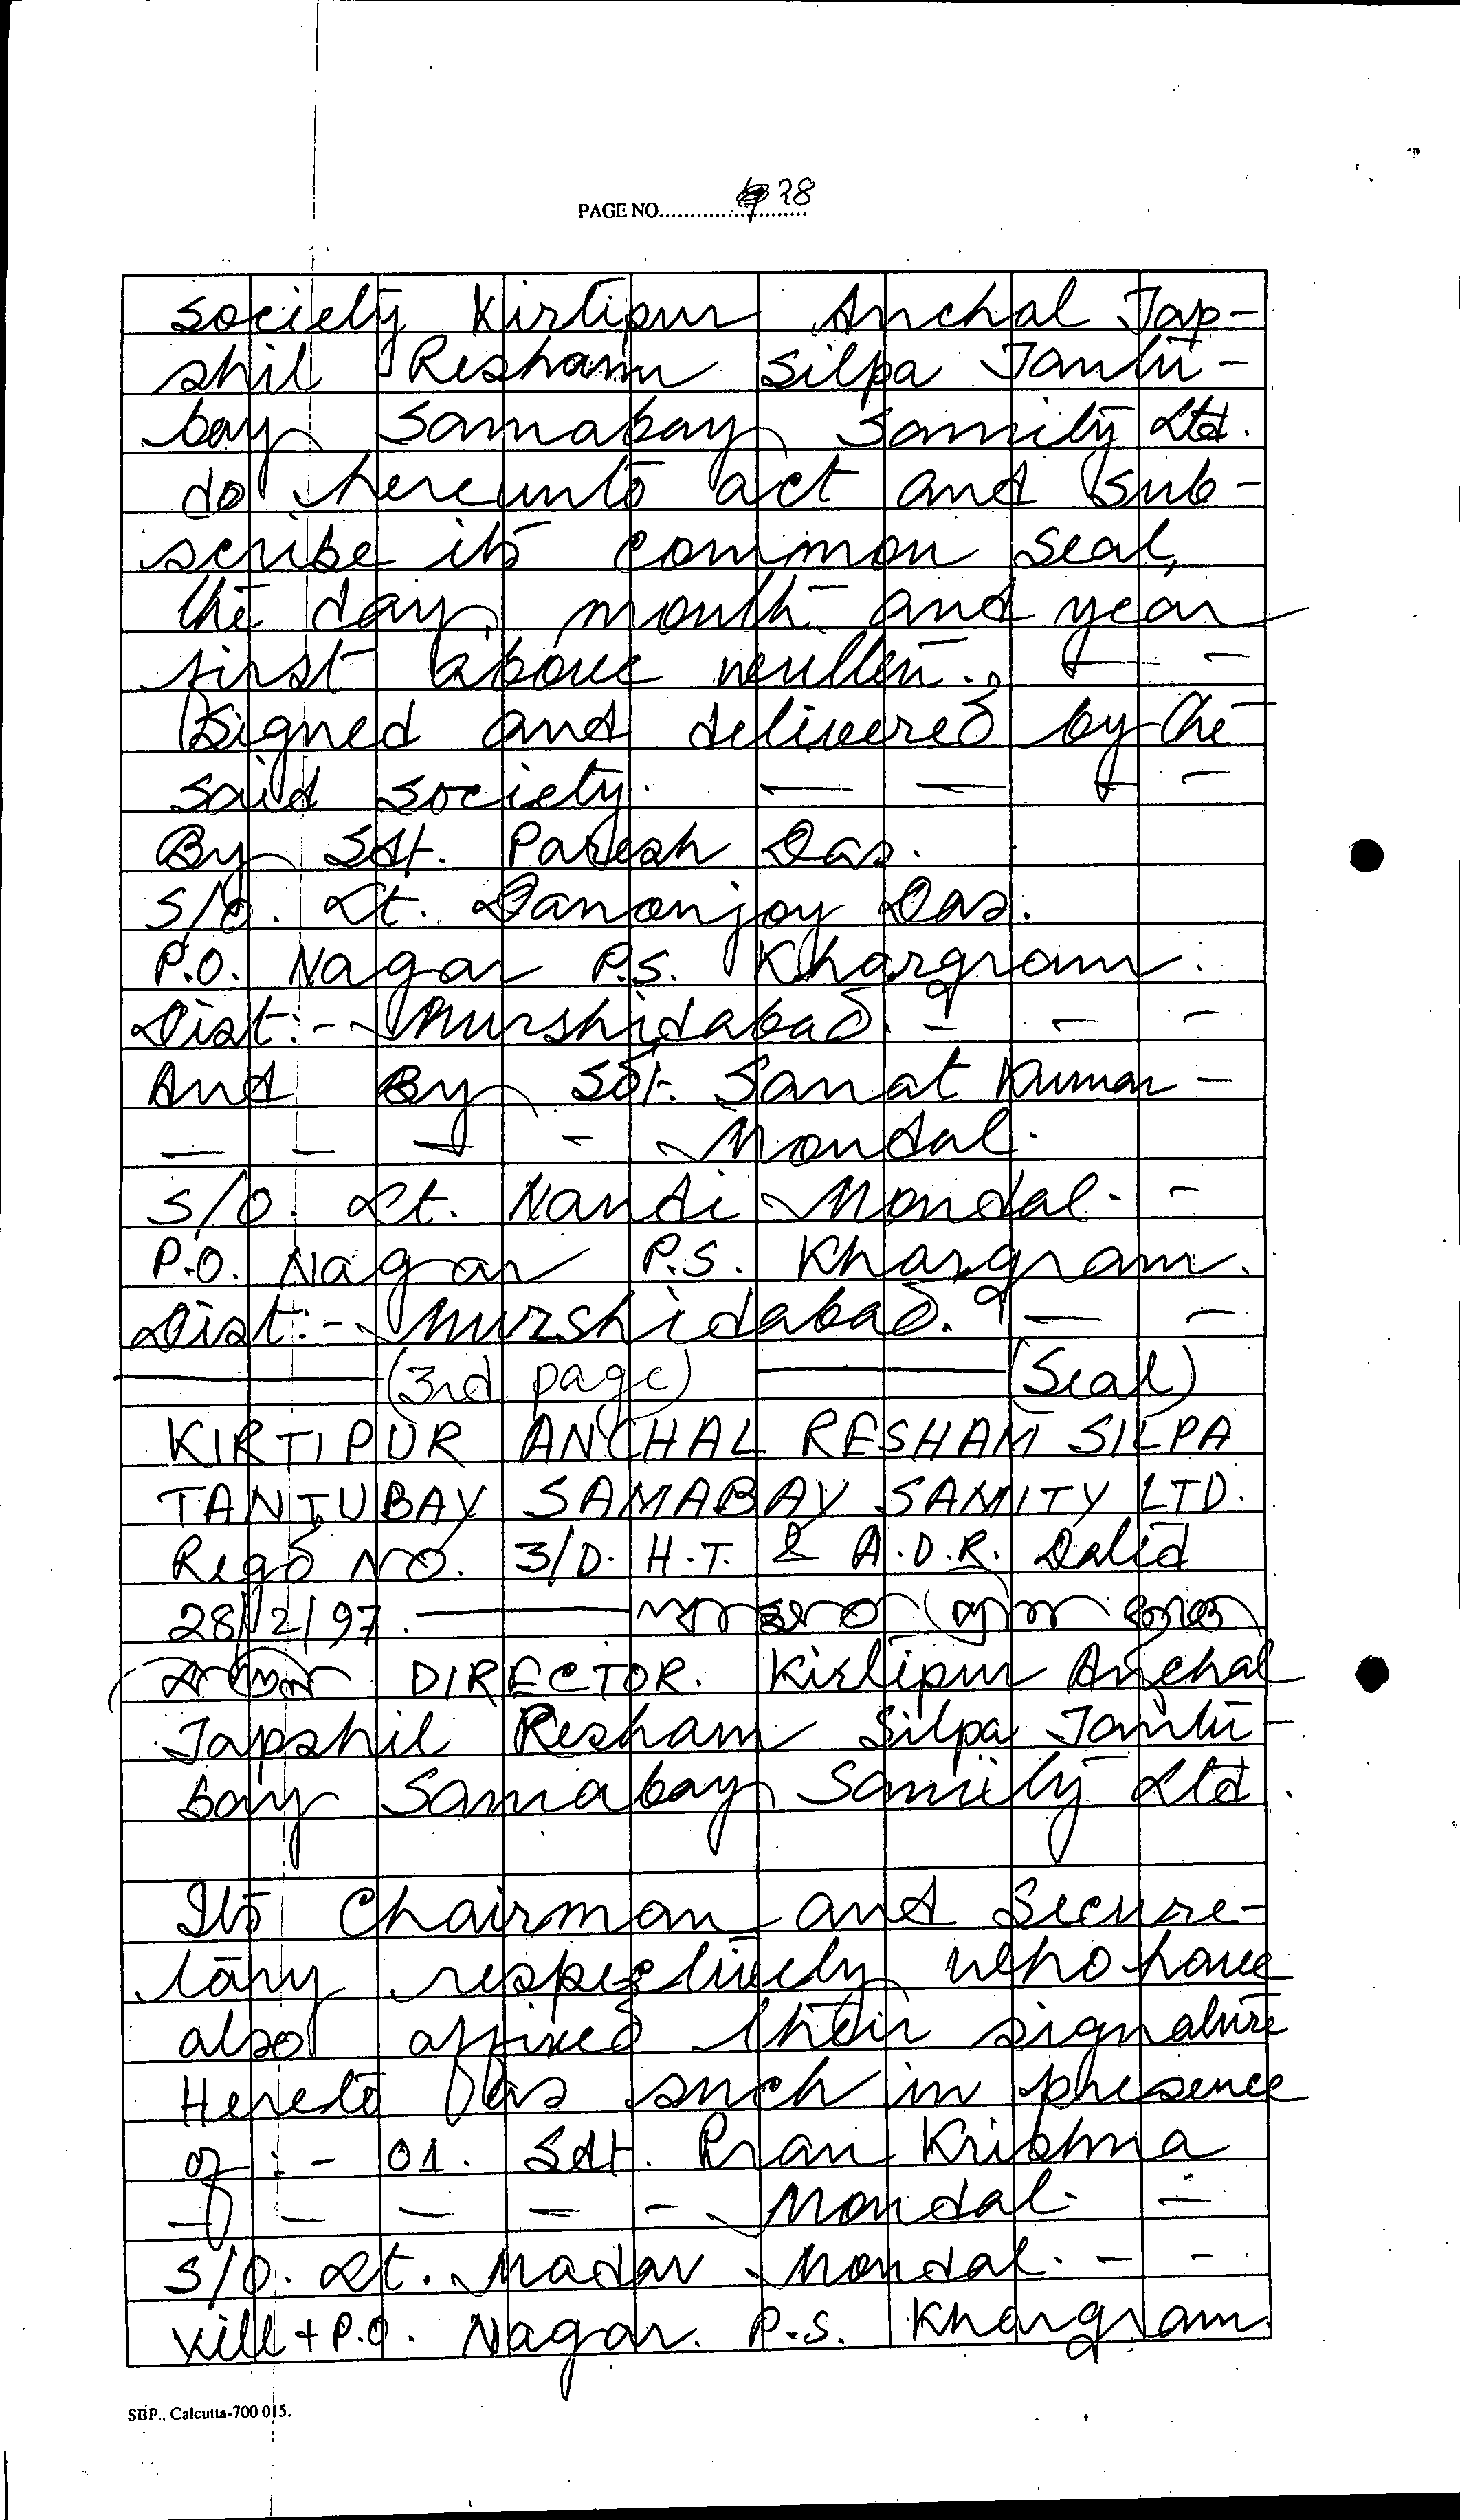 PAGE NO. 28
society Kirtipur Anchal Tap-
shil Resham Silpa Tantu-
bay Samabay Samity Ltd.
do hereunto act and sub-
scribe its common seal,
the day, month and year
first above written. — —
Signed and delivered by the
said society. — — — —
By Sdt. Paresh Das.
S/O. Lt. Dananjoy Das.
P.O. Nagar P.S. Khargram.
Dist:- Murshidabad. — — —
And By Sdt. Sanat Kumar -
— — — — Mondal.
S/O. Lt. Nandi Mondal. -
P.O. Nagar P.S. Khargram.
Dist:- Murshidabad. — —
——— (3rd page) ——— (Seal)
KIRTIPUR ANCHAL RESHAM SILPA
TANTUBAY SAMABAY SAMITY LTD.
Regd NO. 3/D. H.T. & A.D.R. Dated
28/12/97. ———
DIRECTOR. Kirtipur Anchal
Tapshil Resham Silpa Tantu-
bay Samabay Samity Ltd.
Its Chairman and Secure-
tary respectively who have
also affixed their signature
Hereto as such in presence
of :- 01. Sdt. Pran Krishna
— — — — — Mondal. —
S/O. Lt. Madav Mondal. - -
Vill + P.O. Nagar. P.S. Khargram.
SBP., Calcutta-700 015.